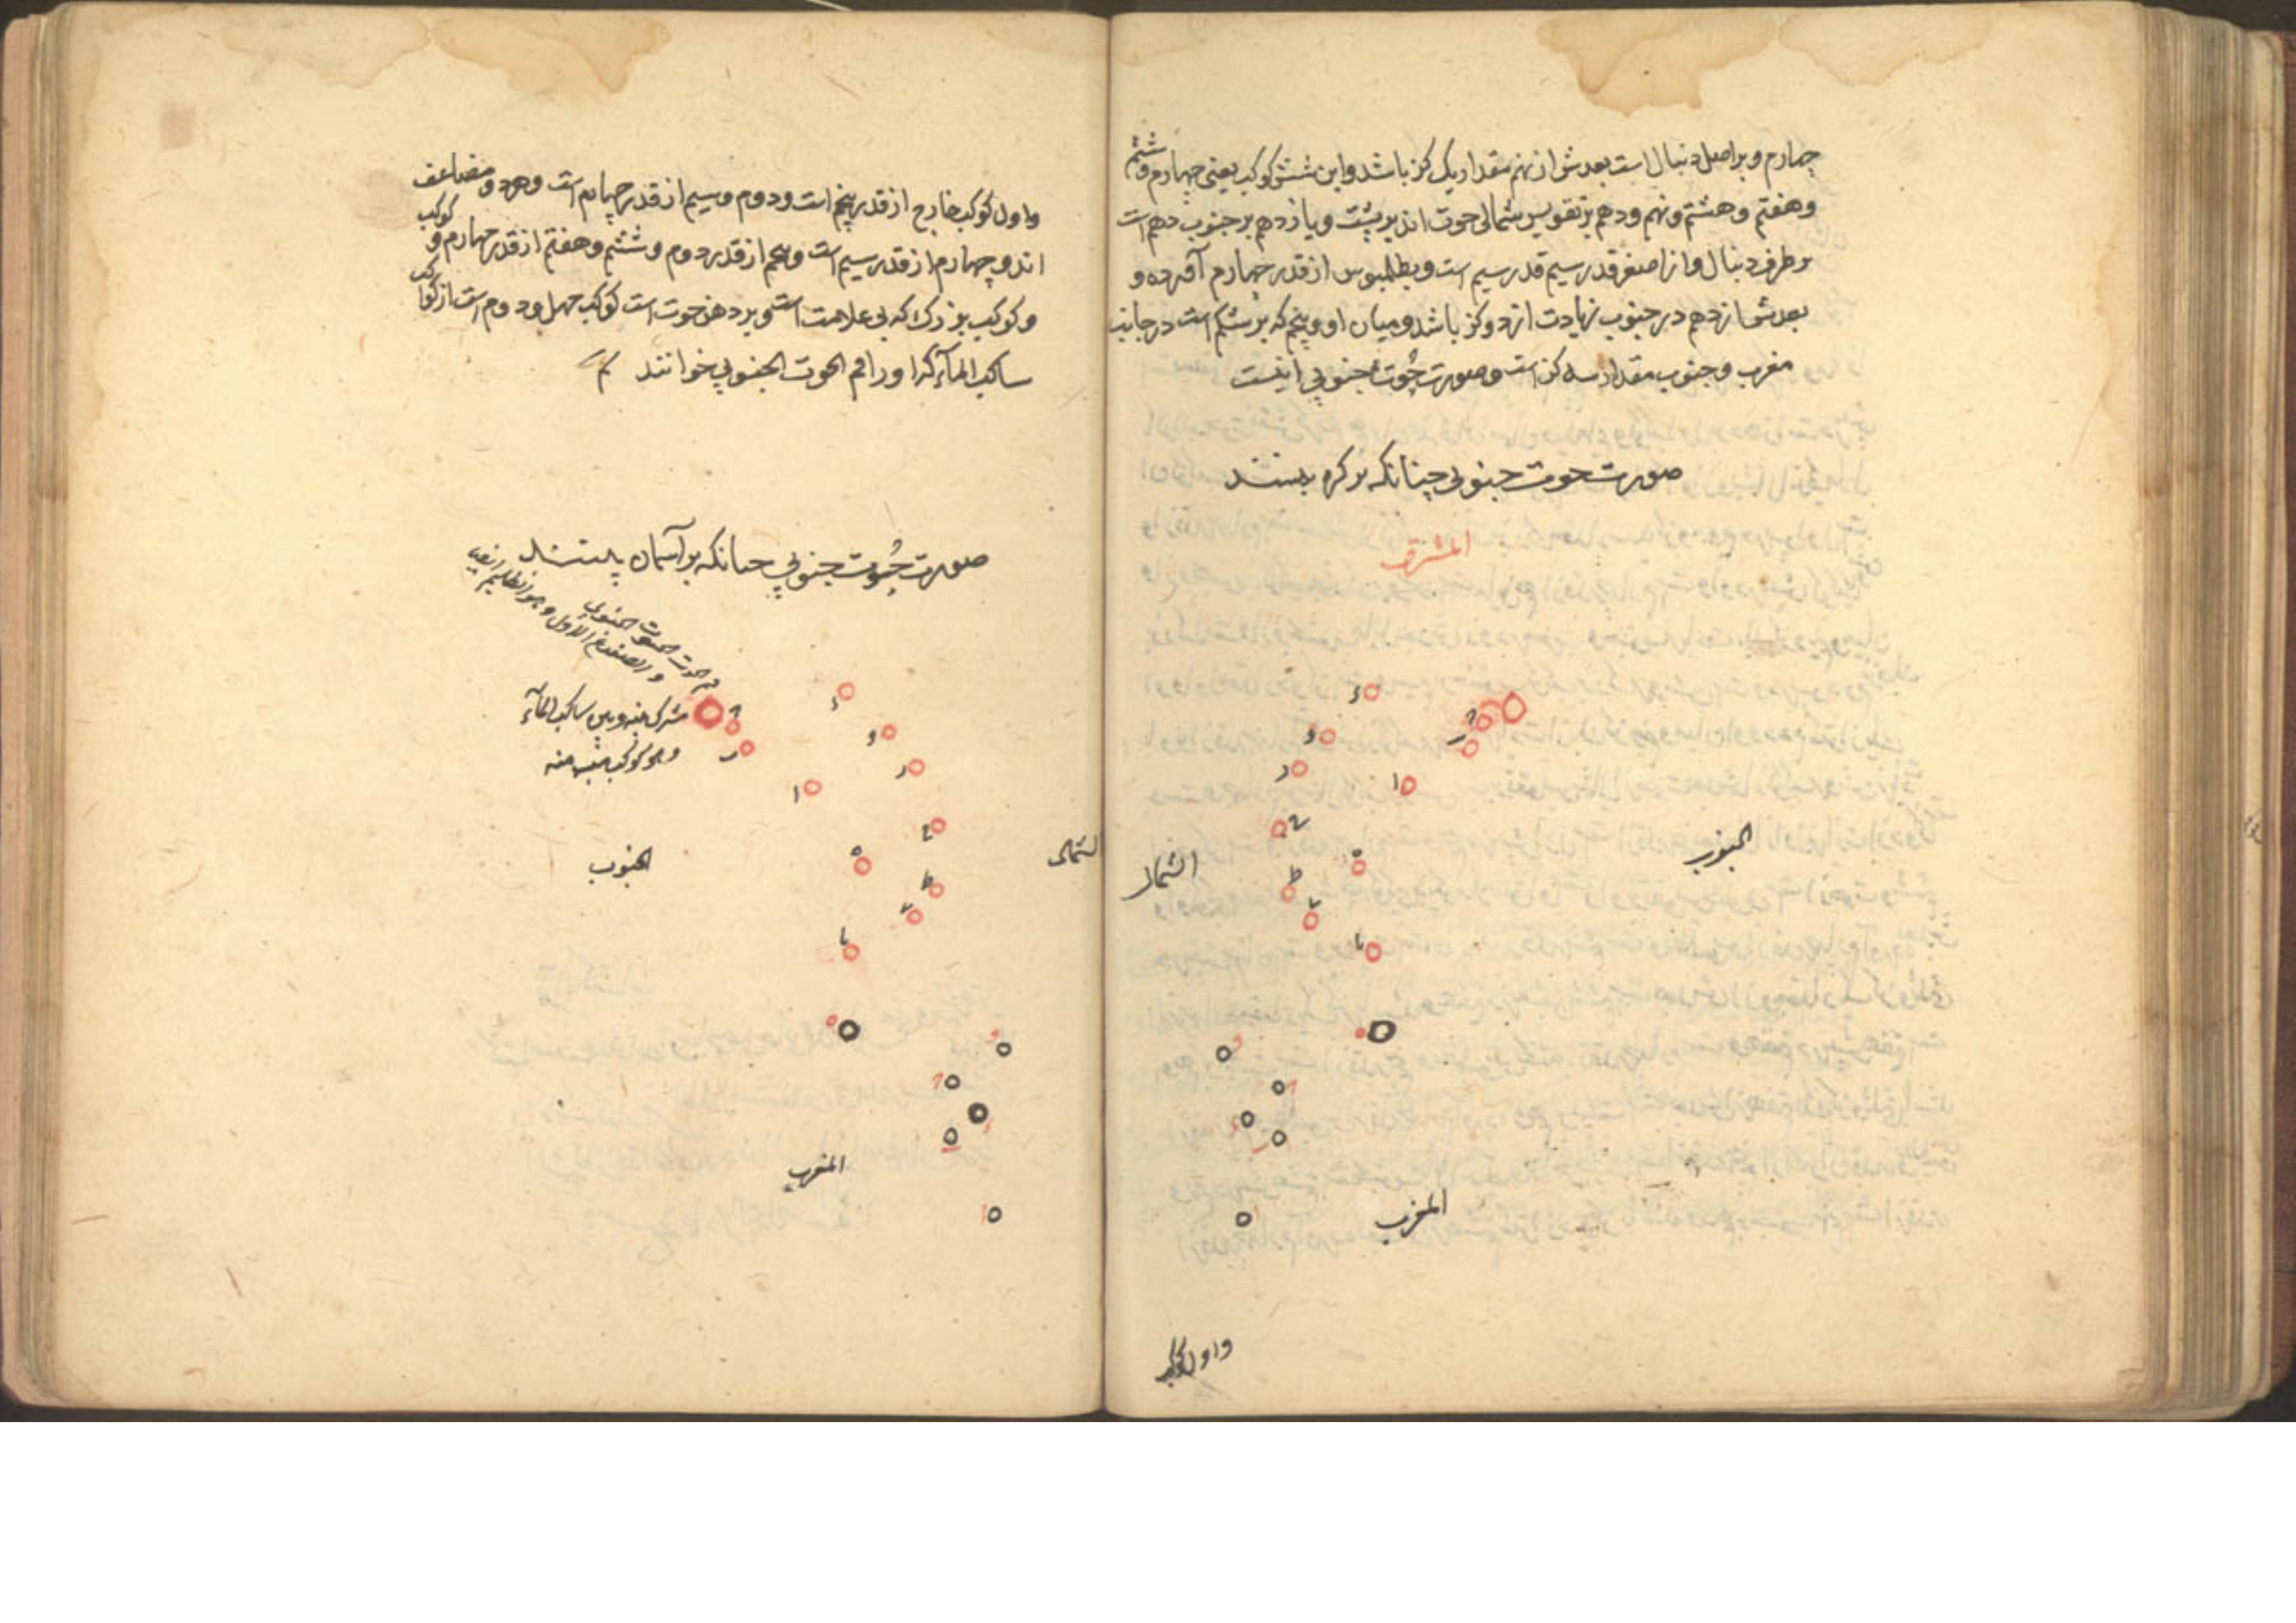 چهارم و بر اصل دنبال است بعدش از نهم مقدار یک کز باشد و این شش کوکب یعنی چهارم و ششم
و هفتم و هشتم و نهم و دهم بر تقویس شمالی حوت اند بر پشت و یازدهم بر جنوب دهم است
بر طرف دنبال و از اصغر قدر سیم قدر سیم است و بطلمیوس از قدر چهارم آورده و
بعدش از دهم در جنوب زیادت از دو کز باشد و میان او و پنجم که بر شکم است در جانب
مغرب و جنوب مقدار سه کز است و صورت حُوت جنوبی اینست
صورت حوت جنوبی چنانکه بر کره بینند
المشرق
ء
و
ر
ا
ح
ه
ط
ی
یا
الجنوب
الشمال
المغرب
و اول کوکب
و اول کوکب خارج از قدر پنجم است و دوم و سیم از قدر چهارم است و هر دو مضاعف
اند و چهارم از قدر سیم است و پنجم از قدر دوم و ششم و هفتم از قدر چهارم و کوکب
و کوکب بزرک که بی علامت است و بر دهن حوت است کوکب چهل و دوم است از کواکب
ساکب المآء که او را فم الحوت الجنوبی خوانند
صورت حُوت جنوبی چنانکه بر آسمان بینند
فم الحوت الحوت الجنوبی
و الضفدع الاول و هو الظلیم ایضا
مشترک بینه و بین ساکب المآء
و هو کوکب منه
ء
و
ر
ا
ح
ه
ط
ی
یا
الجنوب
الشمال
المغرب